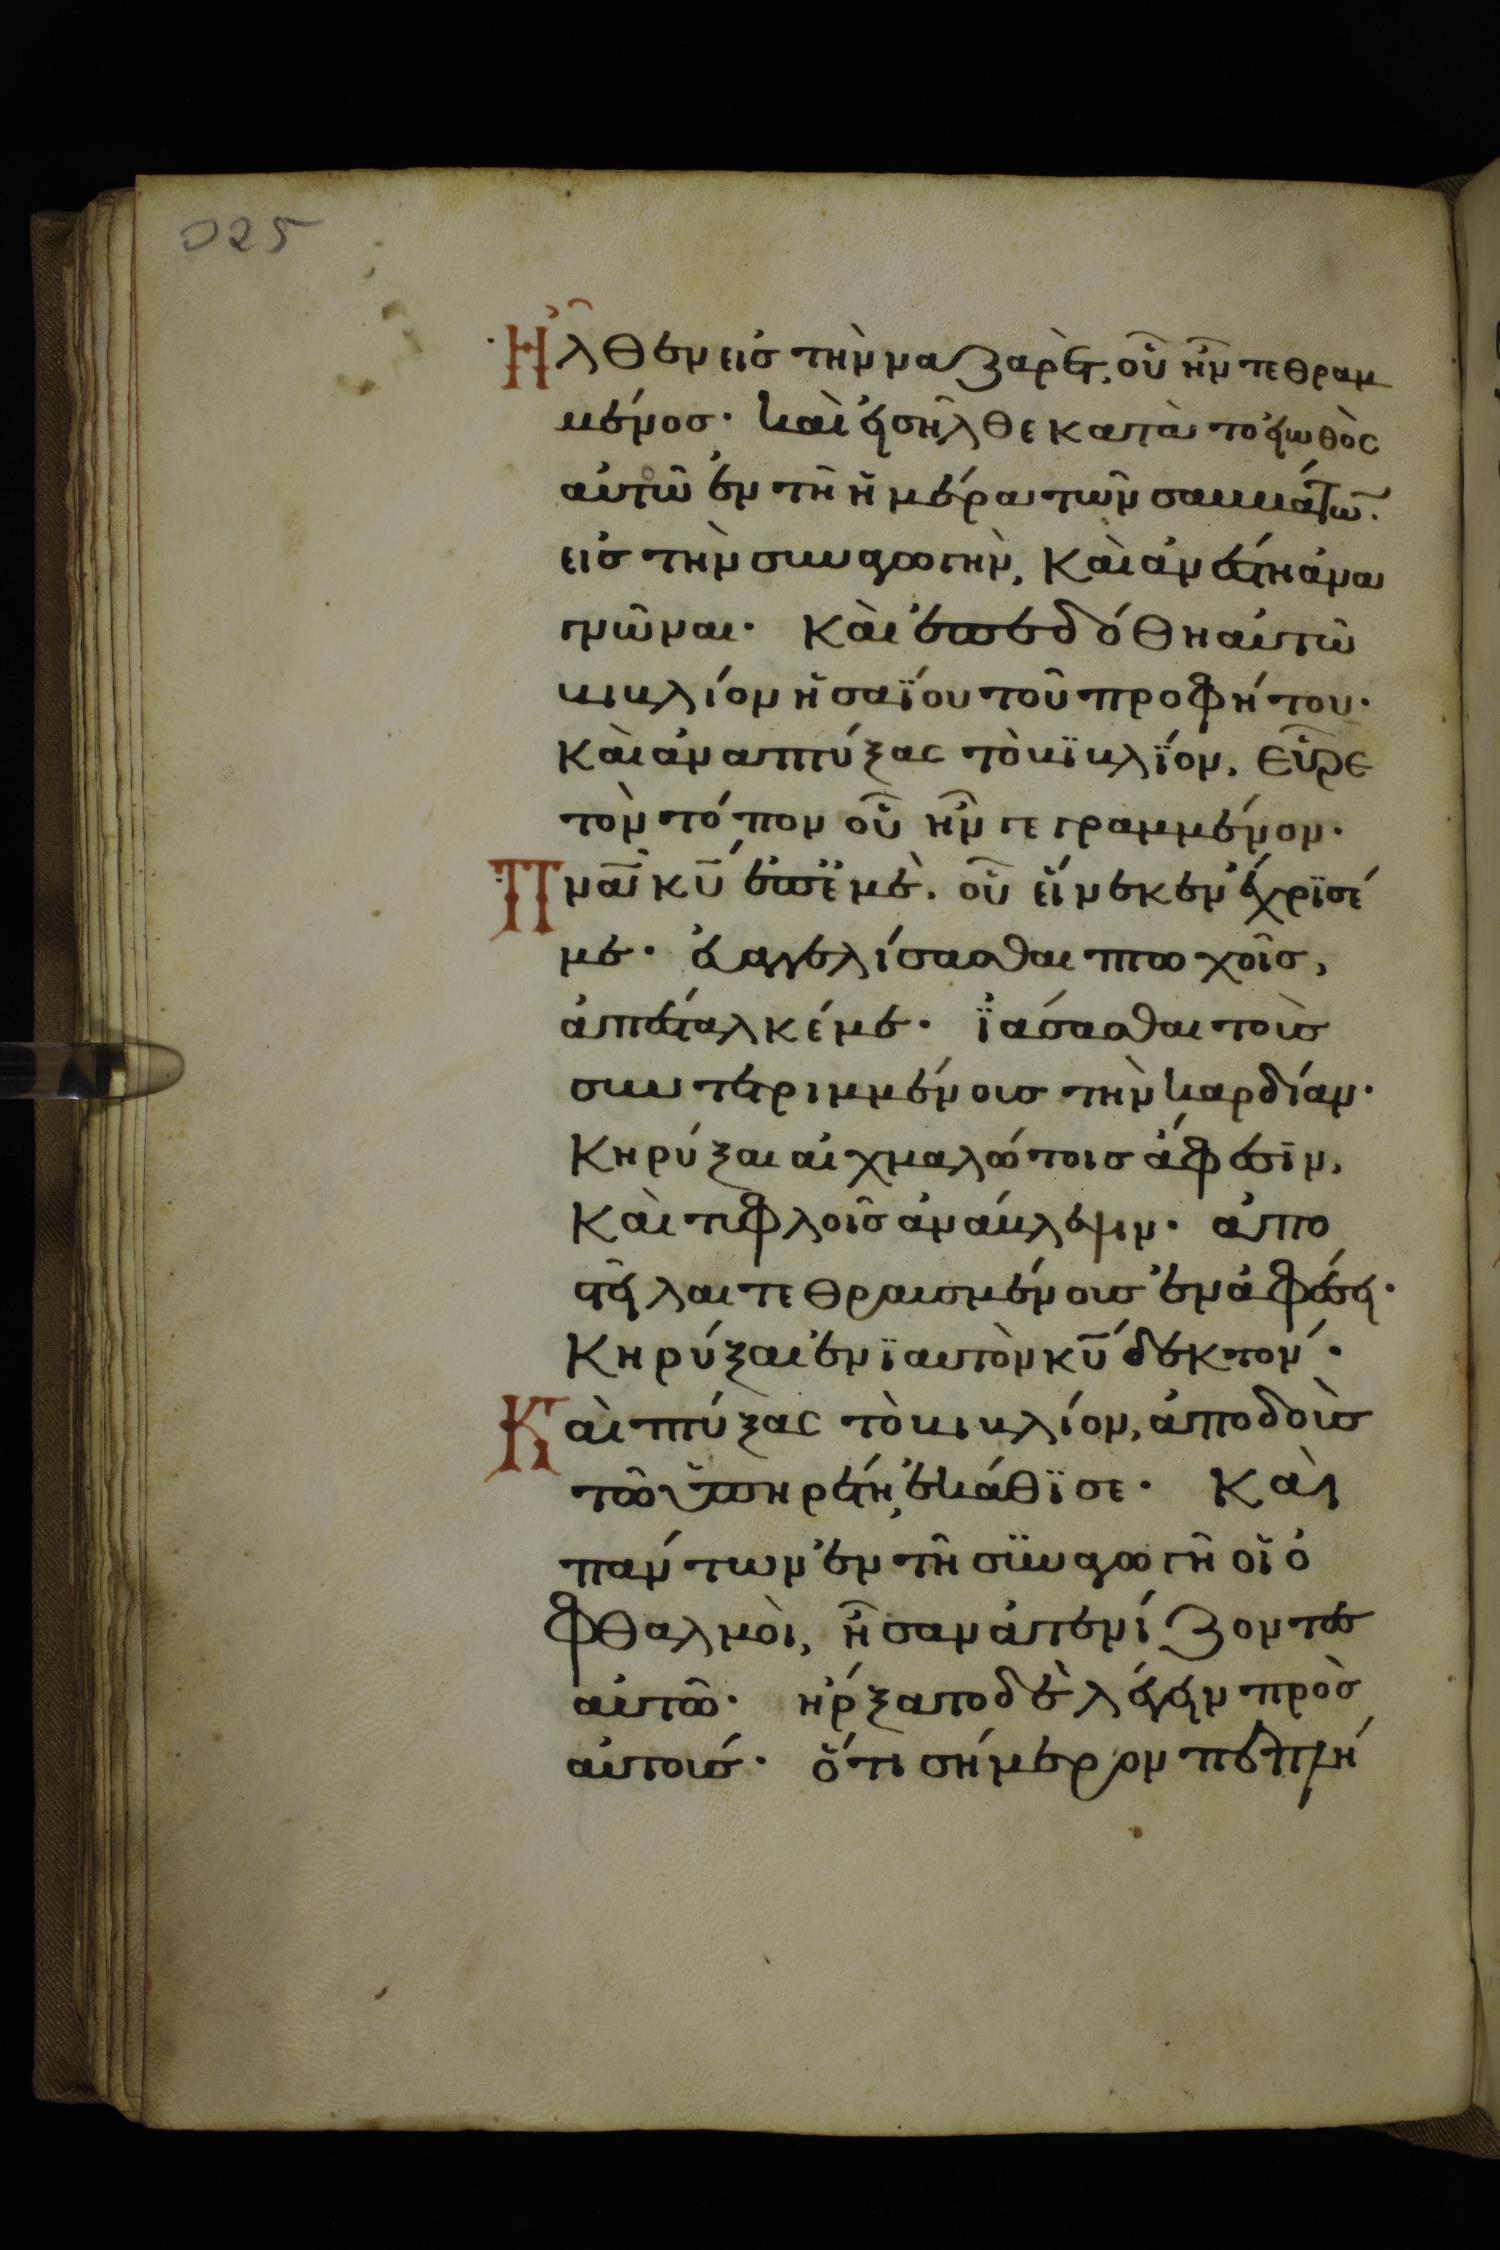 025
Ἦλθεν εἰς τὴν ναζαρὲτ, οὗ ἦν τεθραμ
μένος· καὶ εἰσῆλθε κατὰ τὸ εἰωθὸς
αὐτῶ ἐν τῆ ἡμέρα τῶν σαββάτω̅.
εἰς τὴν συναγωγὴν, καὶ ἀνέστη ἀνα
γνῶναι· καὶ ἐπεδόθη αὐτῶ
βιβλίον ἡσαΐου τοῦ προφήτου·
καὶ ἀναπτύξας τὸ βϊβλΐον, εὗρε
τὸν τόπον οὗ ἦν γεγραμμένον·
Πνα̅ κυ̅ ἐπ' ἐμὲ. οὗ εἵνεκεν ἔχρϊσέ
με· εὐαγγελίσασθαι πτωχοῖς,
ἀπέσταλκέ με· ϊάσασθαι τοὺς
συντετριμμένους τὴν καρδίαν·
κηρύξαι αἰχμαλώτοις ἄφεσϊν,
καὶ τυφλοῖς ἀνάβλεψιν· ἀπο
στεῖλαι τεθραυσμένους ἐν ἀφέσει·
κηρύξαι ἐνϊαυτὸν κυ̅ δεκτόν·
Καὶ πτύξας τὸ βιβλίον, ἀποδοὺς
τῶ ὑπηρέτη, ἐκάθϊσε· καὶ
πάντων ἐν τῆ συναγωγῆ οἱ ὀ
φθαλμοὶ, ἦσαν ἀτενίζοντες
αὐτῶ· ἤρξατο δὲ λέγειν πρὸς
αὐτούς· ὅτι σήμερον πεπλή